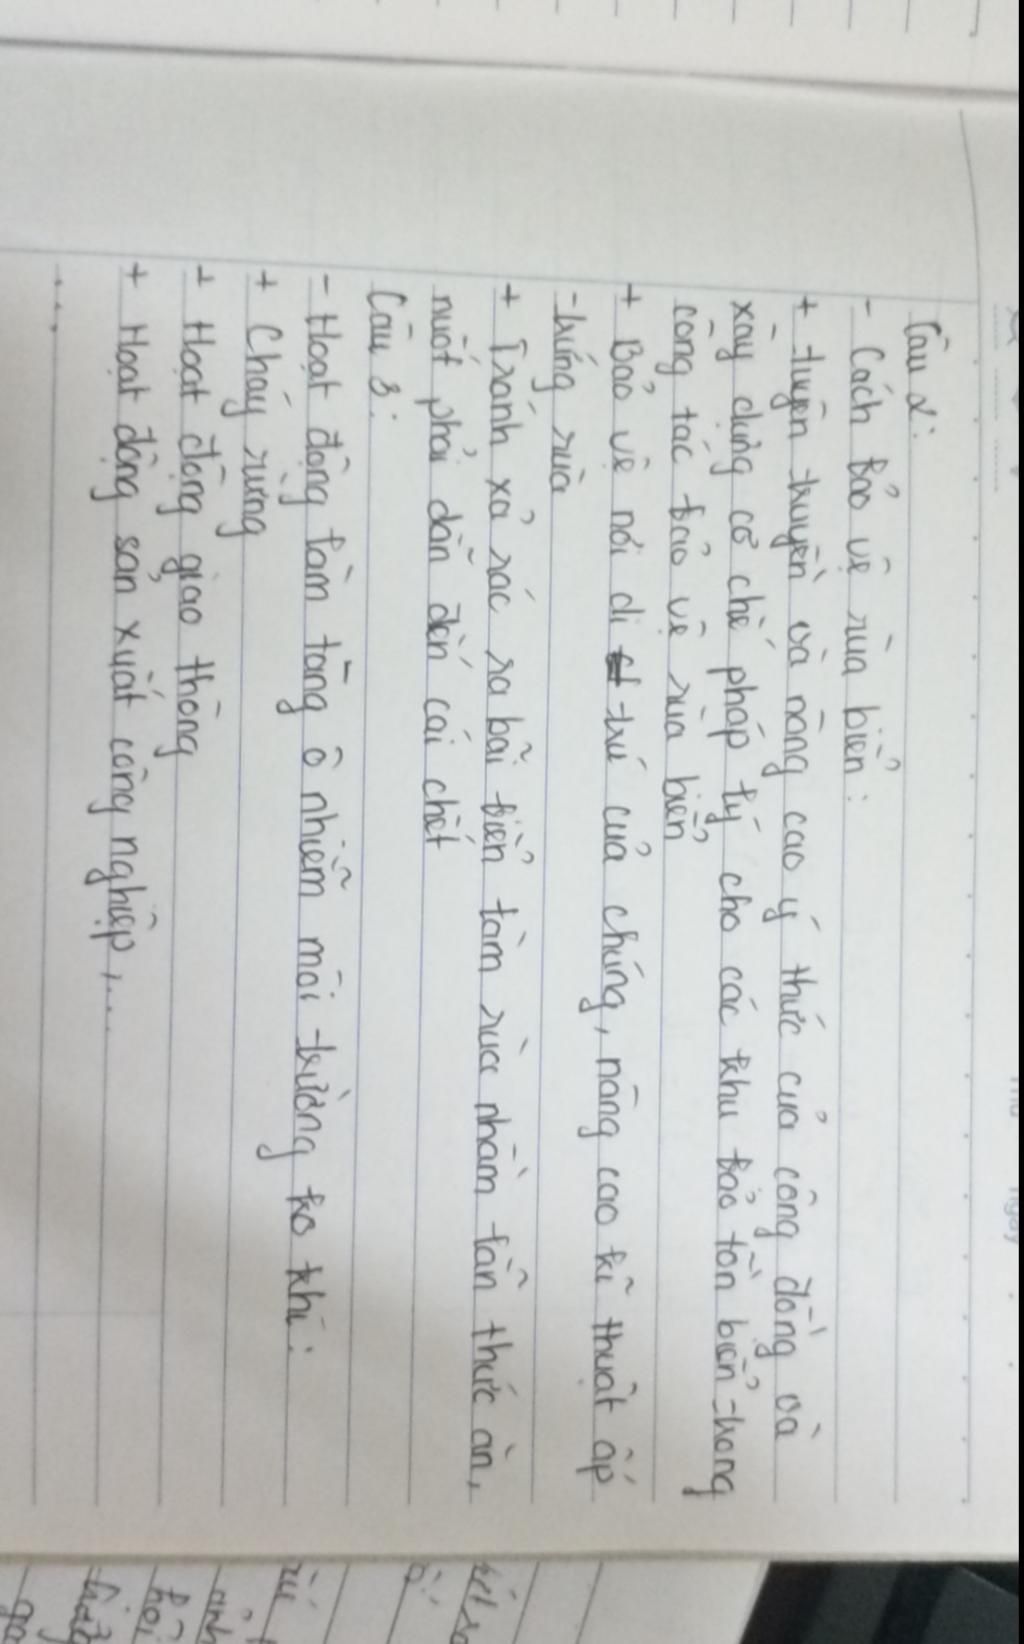 Câu 2:
- Cách bảo vệ rùa biển:
+ tuyên truyền và nâng cao ý thức của cộng đồng và
xây dựng cơ chế pháp lý cho các khu bảo tồn biển trong
công tác bảo vệ rùa biển
+ Bảo vệ nơi di trú của chúng, nâng cao kĩ thuật ấp
trứng rùa
+ Tránh xả rác ra bãi biển làm rùa nhầm lẫn thức ăn,
nuốt phải dẫn đến cái chết
Câu 3:
- Hoạt động làm tăng ô nhiễm môi trường ko khí:
+ Cháy rừng
+ Hoạt động giao thông
+ Hoạt động sản xuất công nghiệp,...
...